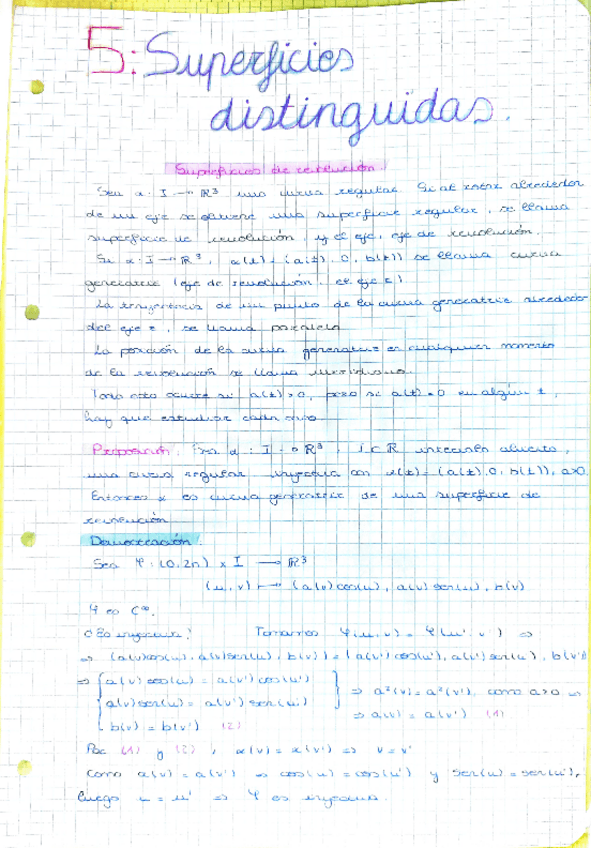 5: Superficies
distinguidas.
Superficies de revolución.
Sea α: I → ℝ³ una curva regular. Si al rotar alrededor
de un eje se obtiene una superficie regular, se llama
superficie de revolución, y el eje, eje de revolución.
Si α: I → ℝ³, α(t) = (a(t), 0, b(t)) se llama curva
generatriz (eje de revolución, el eje z)
La trayectoria de un punto de la curva generatriz alrededor
del eje z, se llama paralelo
La posición de la curva generatriz en cualquier momento
de la revolución se llama meridiano.
Todo esto ocurre si a(t)>0, pero si a(t)=0 en algún t,
hay que estudiar cada
Proposición. Sea α: I → ℝ³, I⊂ℝ intervalo abierto,
una curva regular inyectiva con α(t) = (a(t), 0, b(t)), a>0
Entonces α es curva generatriz de una superficie de
revolución
Demostración.
Sea φ: (0, 2π) x I → ℝ³
(u, v) ↦ (a(v)cos(u), a(v)sen(u), b(v)
φ es C∞.
¿Es inyectiva? Tomamos φ(u, v) = φ(u', v') ⇒
⇒ (a(v)cos(u), a(v)sen(u), b(v)) = (a(v')cos(u'), a(v')sen(u'), b(v')
⇒ { a(v)cos(u) = a(v')cos(u')
a(v)sen(u) = a(v')sen(u') ] ⇒ a²(v) = a²(v'), como a>0 ⇒
b(v) = b(v') (2) ⇒ a(v) = a(v') (1)
Por (1) y (2), α(v) = α(v') ⇒ v = v'
Como a(v) = a(v') ⇒ cos(u) = cos(u') y sen(u) = sen(u'),
luego u = u' ⇒ φ es inyectiva.